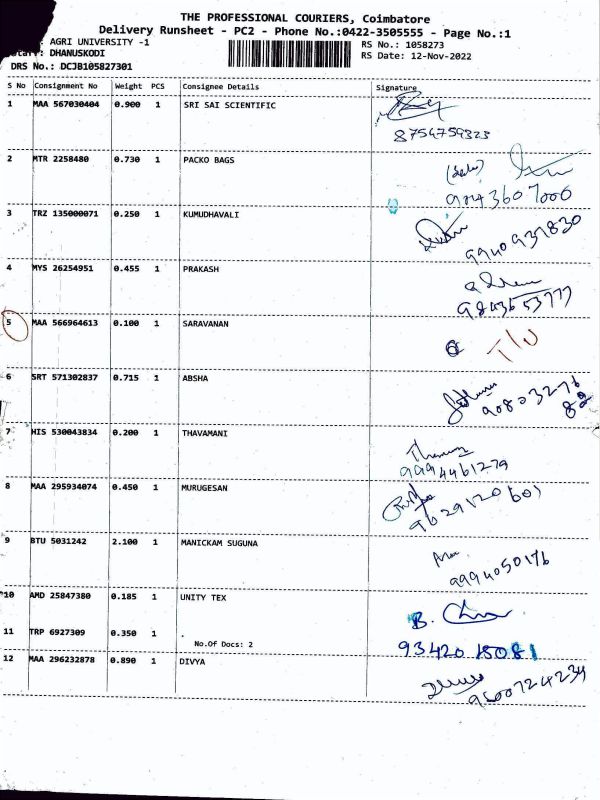 THE PROFESSIONAL COURIERS, Coimbatore
Delivery Runsheet - PC2 - Phone No.:0422-3505555 - Page No.:1
AGRI UNIVERSITY -1 RS No.: 1058273
DHANUSKODI RS Date: 12-Nov-2022
DRS No.: DCJB105827301
S No Consignment No Weight PCS Consignee Details Signature
1 MAA 567030404 0.900 1 SRI SAI SCIENTIFIC
8754759323
2 MTR 2258480 0.730 1 PACKO BAGS
9043607006
3 TRZ 135000071 0.250 1 KUMUDHAVALI
9940931830
4 MYS 26254951 0.455 1 PRAKASH
9843653777
5 MAA 566964613 0.100 1 SARAVANAN
6 SRT 571302837 0.715 1 ABSHA
90803276
82
7 HIS 530043834 0.200 1 THAVAMANI
9994461279
8 MAA 295934074 0.450 1 MURUGESAN
9629120601
9 BTU 5031242 2.100 1 MANICKAM SUGUNA
9994050176
10 AMD 25847380 0.185 1 UNITY TEX
B.
11 TRP 6927309 0.350 1
No.Of Docs: 2
9342015081
12 MAA 296232878 0.890 1 DIVYA
9600724234